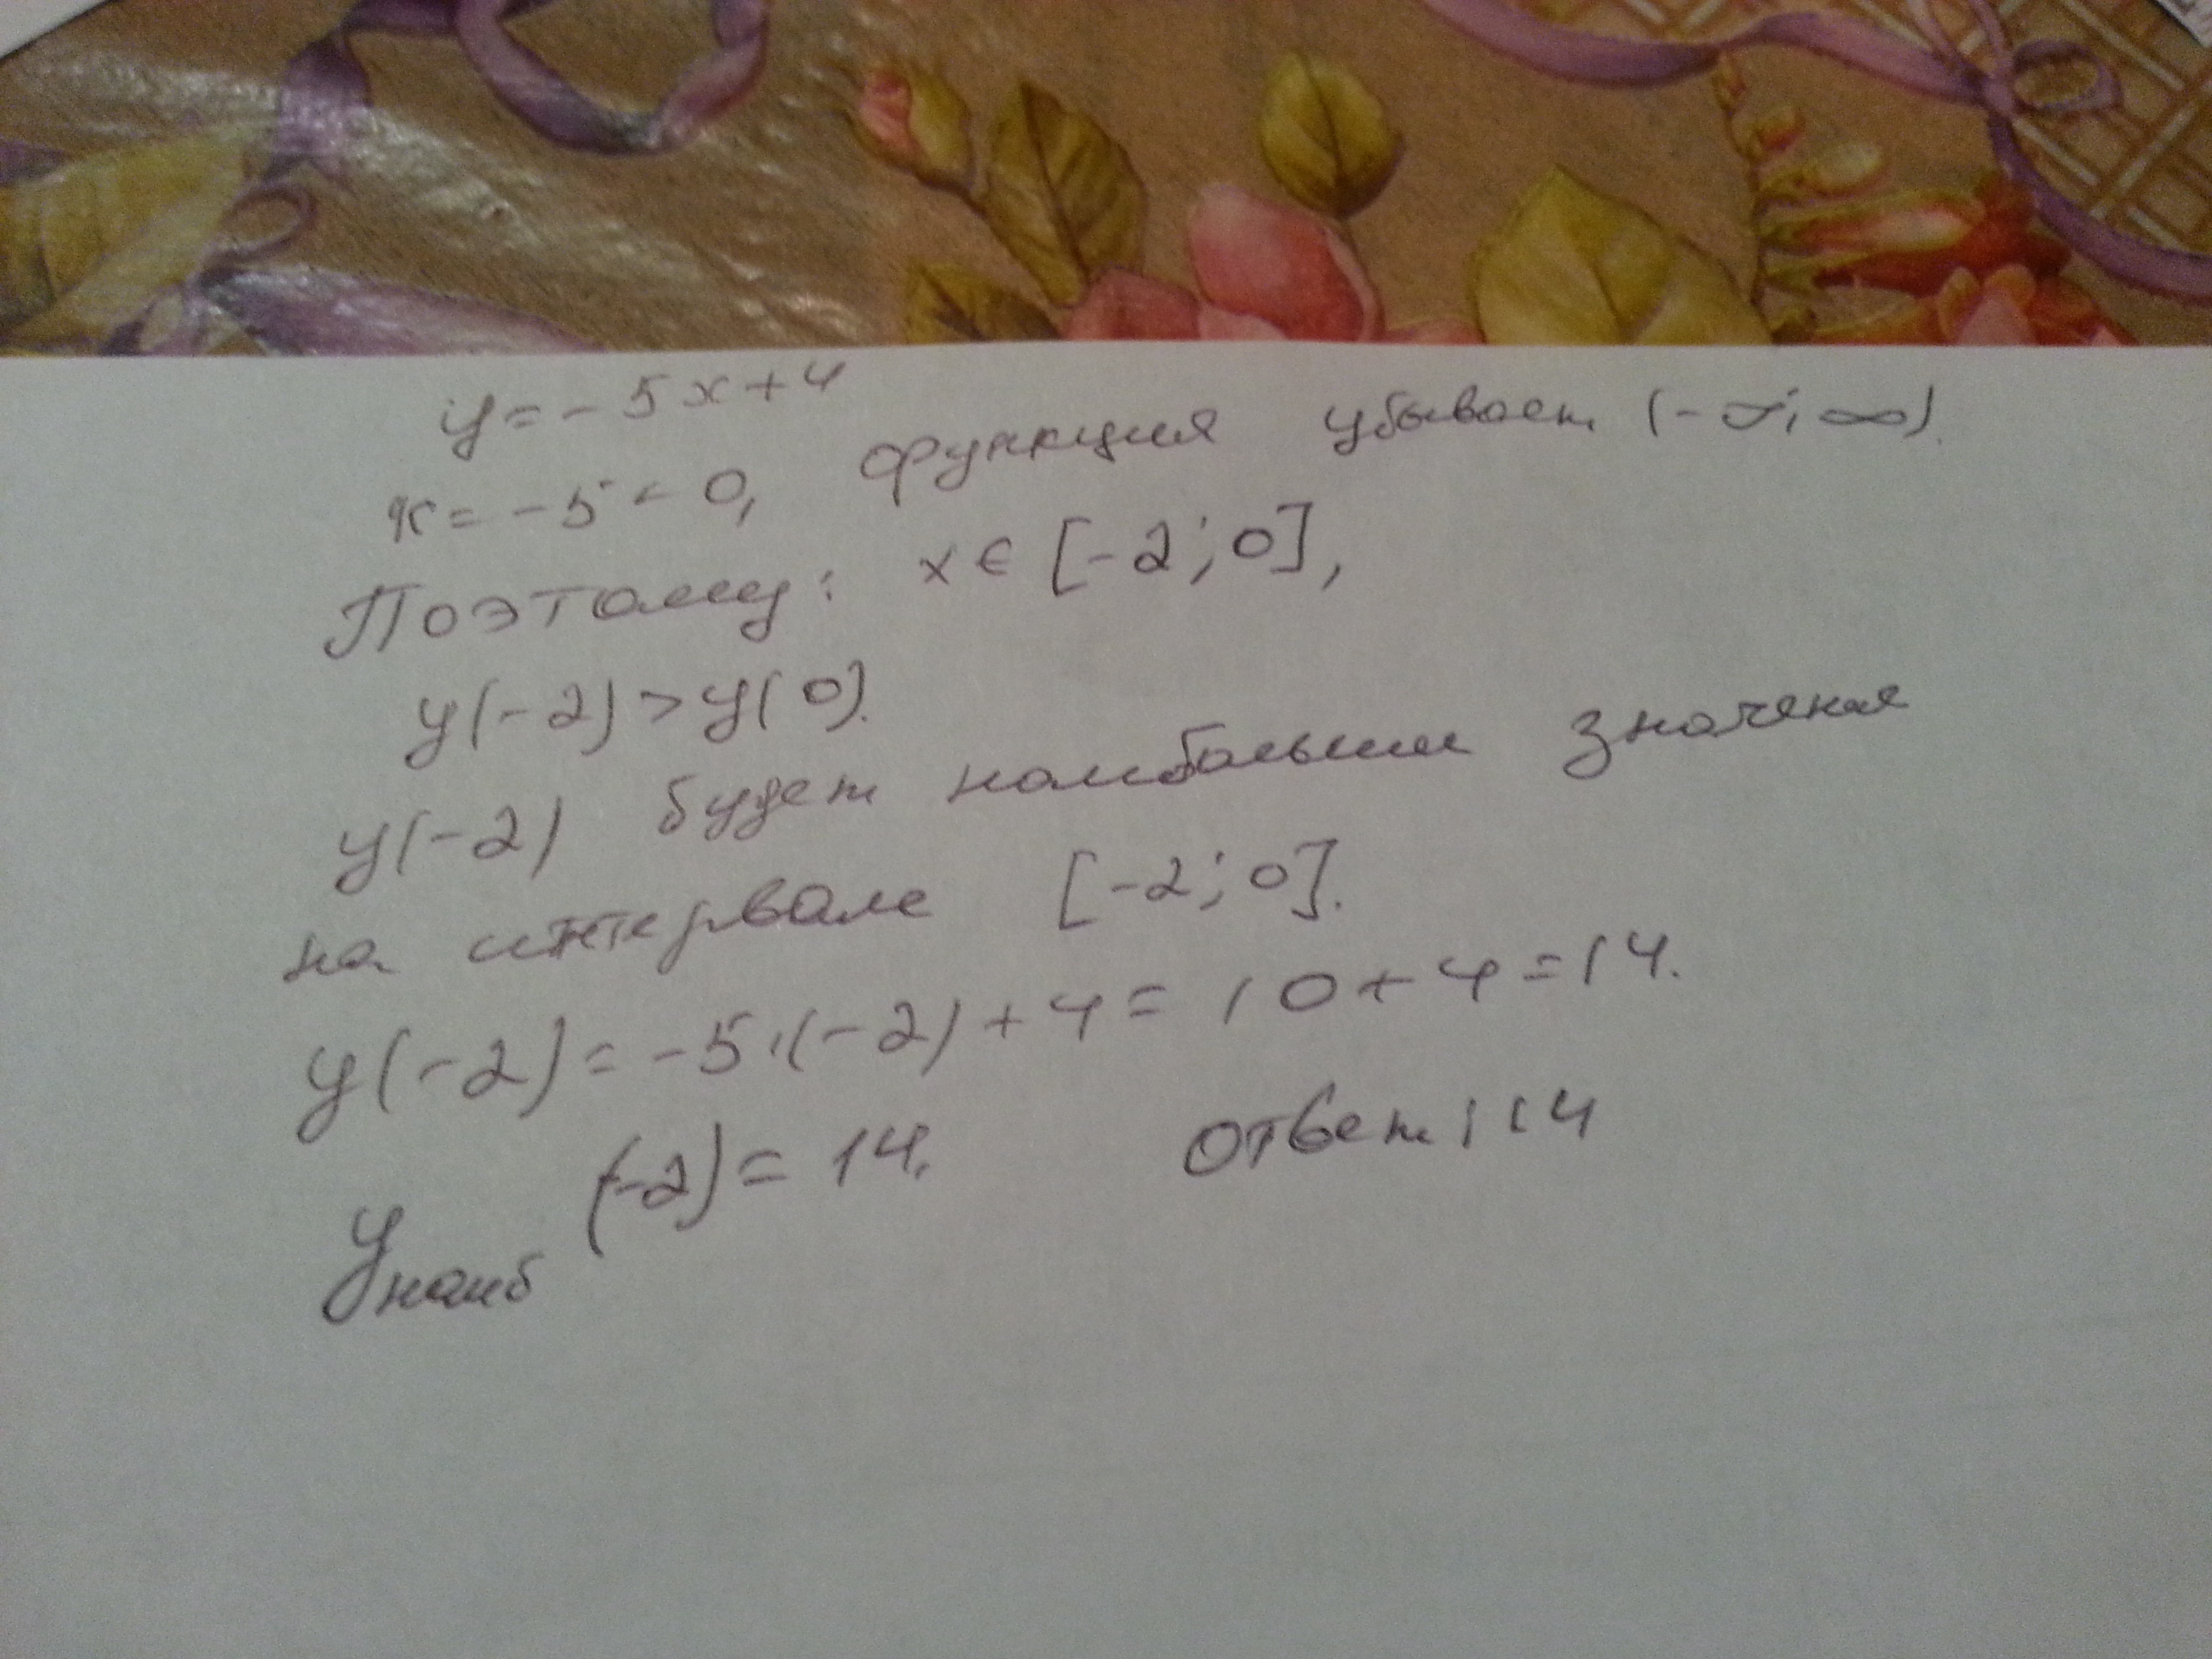 y = -5x + 4
K = -5 < 0, функция убывает (-∞; ∞).
Поэтому: x ∈ [-2; 0],
y(-2) > y(0).
y(-2) будет наибольшим значения
на интервале [-2; 0].
y(-2) = -5·(-2) + 4 = 10 + 4 = 14.
y наиб (-2) = 14. Ответ: 14